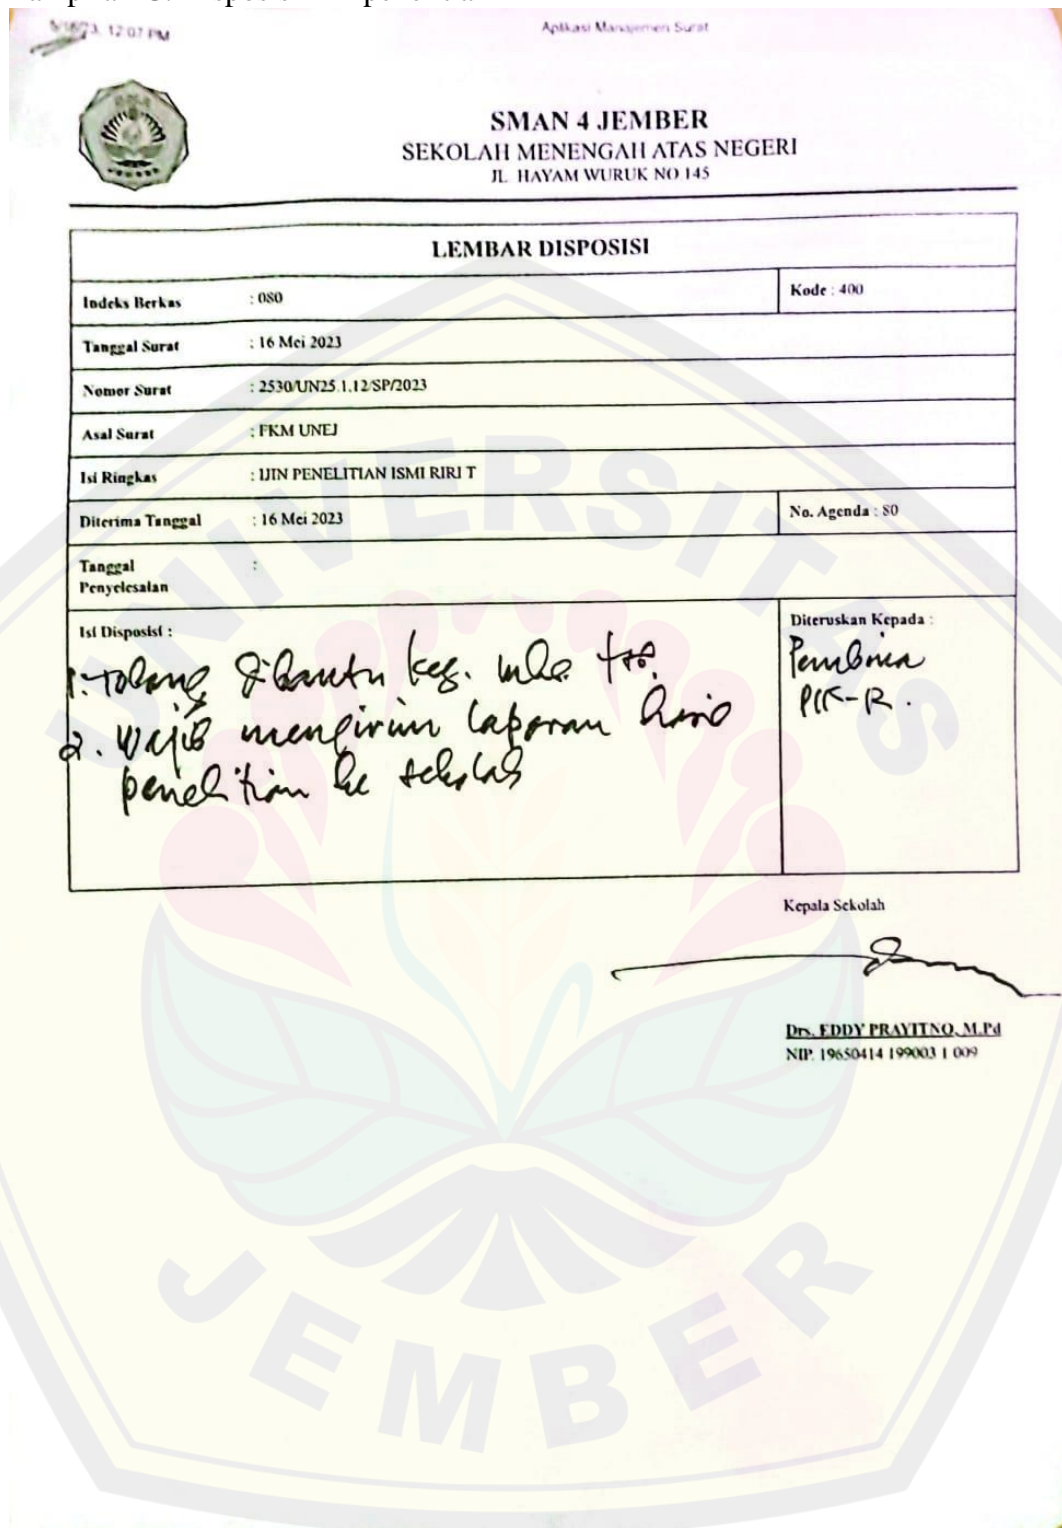 5/16/23, 12:07 PM Aplikasi Manajemen Surat
SMAN 4 JEMBER
SEKOLAH MENENGAH ATAS NEGERI
JL. HAYAM WURUK NO 145
LEMBAR DISPOSISI
Indeks Berkas : 080 Kode : 400
Tanggal Surat : 16 Mei 2023
Nomor Surat : 2530/UN25.1.12/SP/2023
Asal Surat : FKM UNEJ
Isi Ringkas : IJIN PENELITIAN ISMI RIRI T
Diterima Tanggal : 16 Mei 2023 No. Agenda : 80
Tanggal :
Penyelesaian
Isi Disposisi : Diteruskan Kepada :
1. Tolong dibantu keg. mhs tsb. Pembina
2. Wajib mengirim laporan hasil PIK-R.
penelitian ke sekolah
Kepala Sekolah
Drs. EDDY PRAYITNO, M.Pd
NIP. 19650414 199003 1 009
UNIVERSITAS
JEMBER